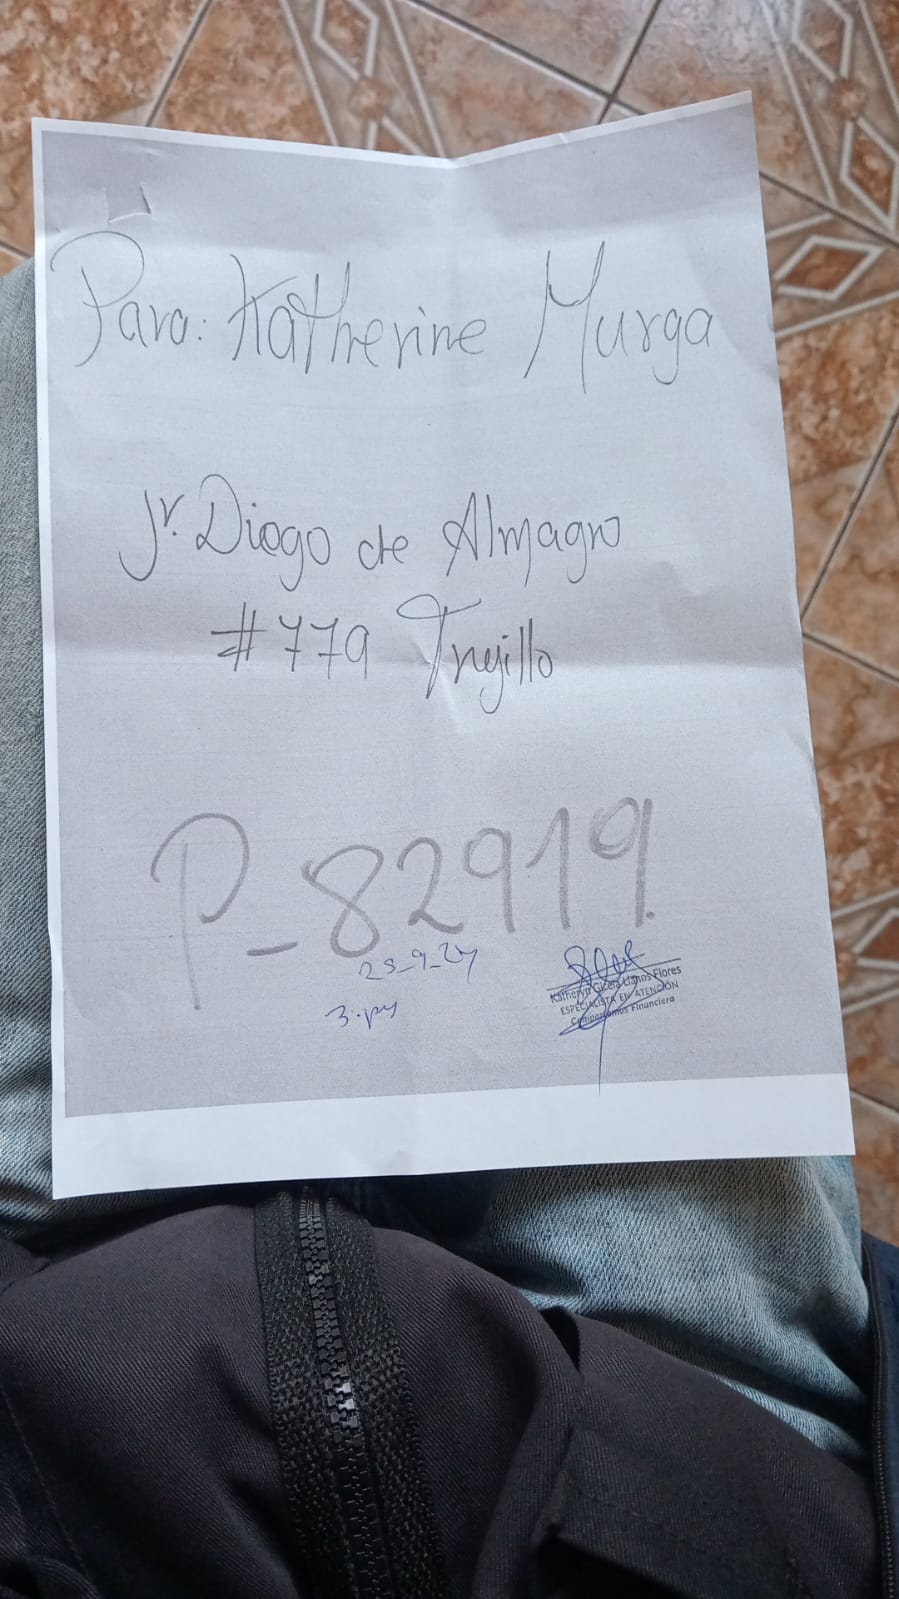 Para: Katherine Murga
Jr. Diego de Almagro
#779 Trujillo
P-82919
25-9-24
3:py
Katheryn Gicela Llanos Flores
ESPECIALISTA EN ATENCIÓN
Compartamos Financiera